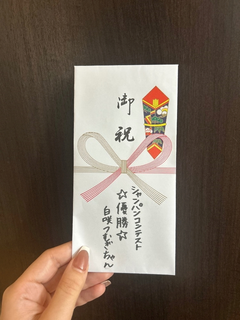 御祝
シャンパンコンテスト
☆優勝☆
白咲つむぎちゃん